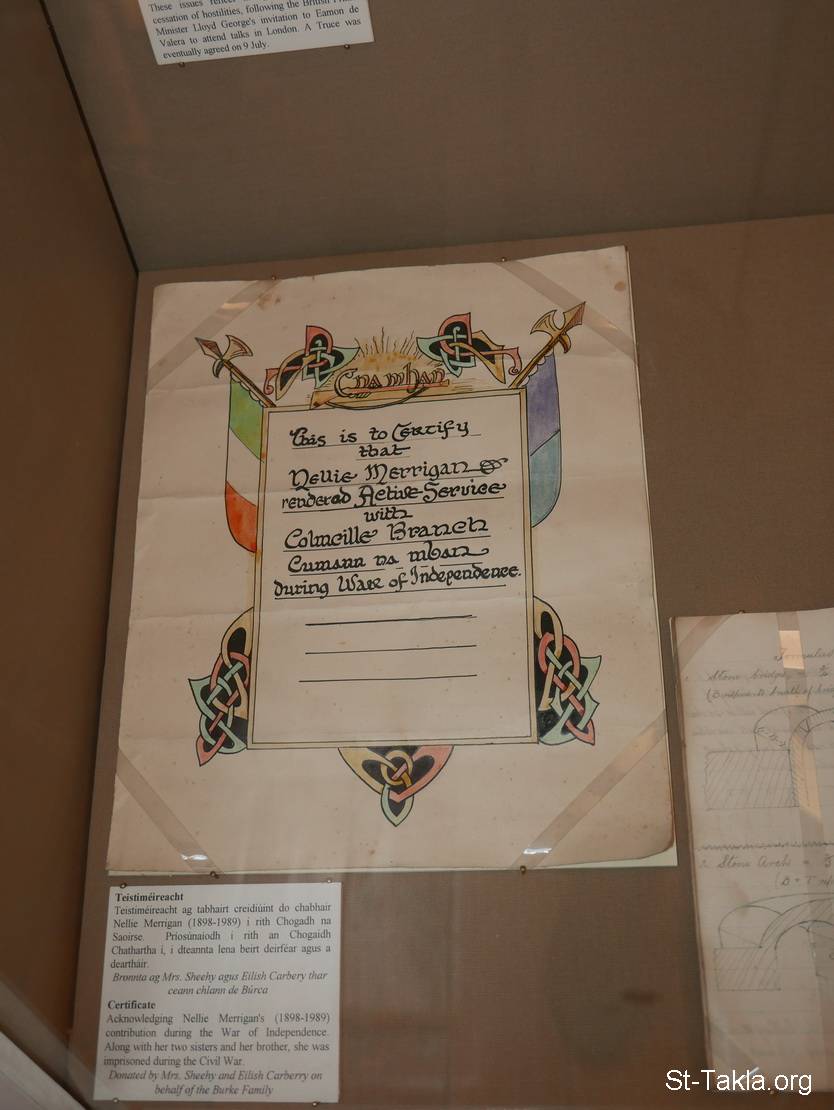 These issues
cessation of hostilities, following the British
Minister Lloyd George's invitation to Eamon de
Valera to attend talks in London. A Truce was
eventually agreed on 9 July.
This is to Certify
that
Nellie Merrigan
rendered Active Service
with
Colmcille Branch
Cumann na mban
during War of Independence.
Stone bridge
2. Stone Arch =
Teistiméireacht
Teistiméireacht ag tabhairt creidiúint do chabhair
Nellie Merrigan (1898-1989) i rith Chogadh na
Saoirse. Príosúnaíodh i rith an Chogaidh
Chathartha í, i dteannta lena beirt deirféar agus a
deartháir.
Bronnta ag Mrs. Sheehy agus Eilish Carbery thar
ceann chlann de Búrca
Certificate
Acknowledging Nellie Merrigan's (1898-1989)
contribution during the War of Independence.
Along with her two sisters and her brother, she was
imprisoned during the Civil War.
Donated by Mrs. Sheehy and Eilish Carberry on
behalf of the Burke Family
St-Takla.org